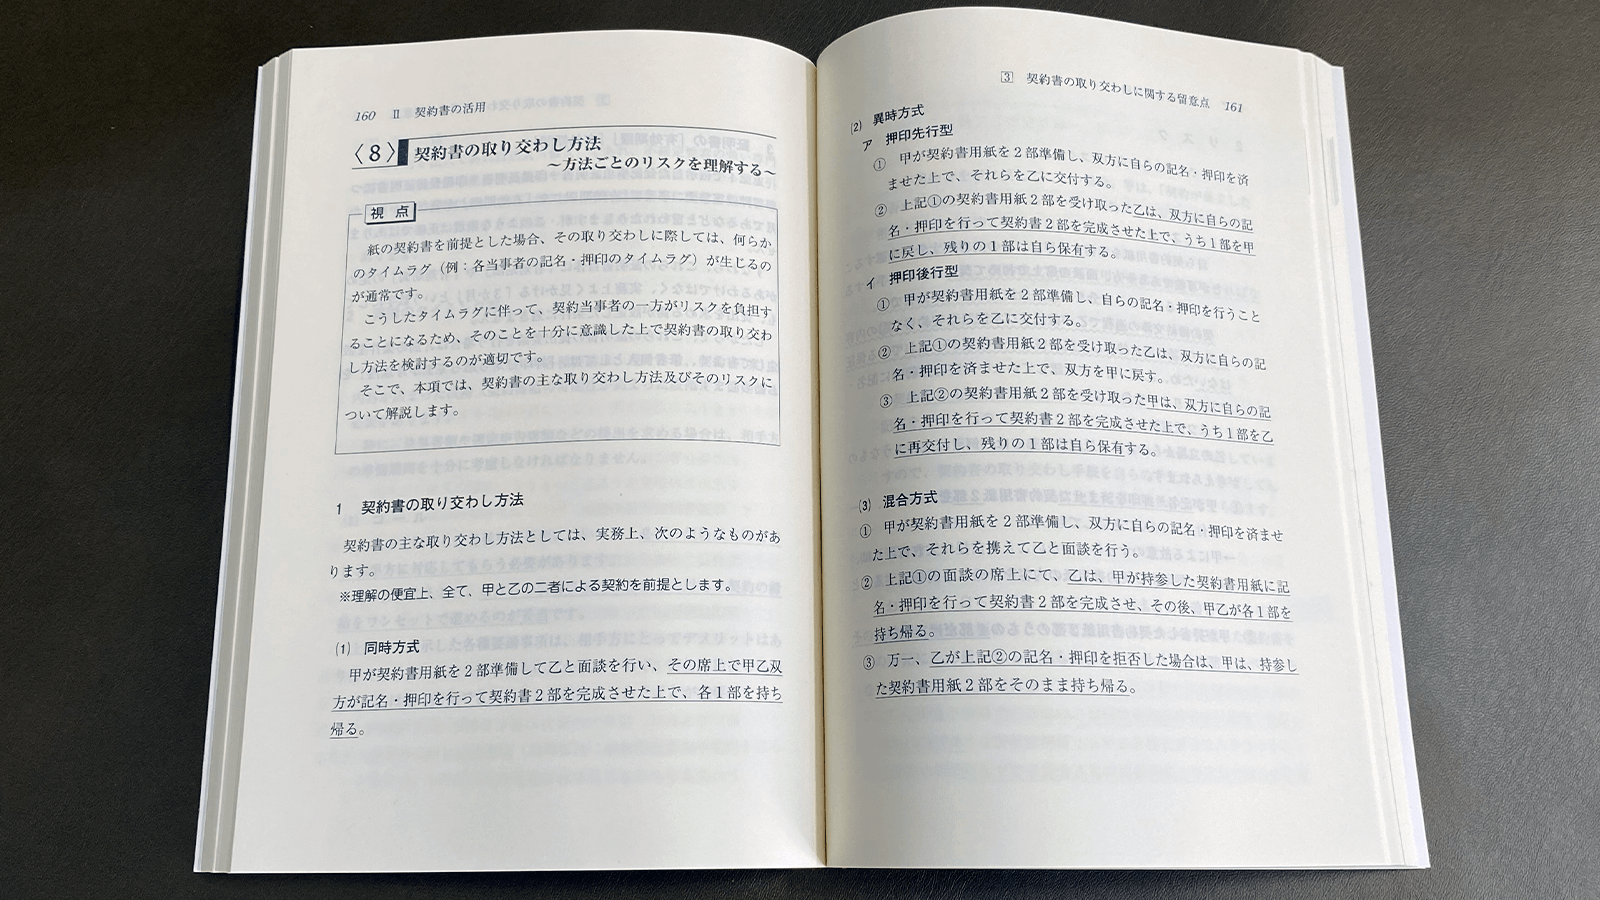 160　Ⅱ　契約書の活用
〈8〉 契約書の取り交わし方法
～方法ごとのリスクを理解する～
視 点
紙の契約書を前提とした場合、その取り交わしに際しては、何らか
のタイムラグ（例：各当事者の記名・押印のタイムラグ）が生じるの
が通常です。
こうしたタイムラグに伴って、契約当事者の一方がリスクを負担す
ることになるため、そのことを十分に意識した上で契約書の取り交わ
し方法を検討するのが適切です。
そこで、本項では、契約書の主な取り交わし方法及びそのリスクに
ついて解説します。
1　契約書の取り交わし方法
契約書の主な取り交わし方法としては、実務上、次のようなものがあ
ります。
※理解の便宜上、全て、甲と乙の二者による契約を前提とします。
(1)　同時方式
甲が契約書用紙を２部準備して乙と面談を行い、その席上で甲乙双
方が記名・押印を行って契約書２部を完成させた上で、各１部を持ち
帰る。
3　契約書の取り交わしに関する留意点　161
(2)　異時方式
ア　押印先行型
①　甲が契約書用紙を２部準備し、双方に自らの記名・押印を済
ませた上で、それらを乙に交付する。
②　上記①の契約書用紙２部を受け取った乙は、双方に自らの記
名・押印を行って契約書２部を完成させた上で、うち１部を甲
に戻し、残りの１部は自ら保有する。
イ　押印後行型
①　甲が契約書用紙を２部準備し、自らの記名・押印を行うこと
なく、それらを乙に交付する。
②　上記①の契約書用紙２部を受け取った乙は、双方に自らの記
名・押印を済ませた上で、双方を甲に戻す。
③　上記②の契約書用紙２部を受け取った甲は、双方に自らの記
名・押印を行って契約書２部を完成させた上で、うち１部を乙
に再交付し、残りの１部は自ら保有する。
(3)　混合方式
①　甲が契約書用紙を２部準備し、双方に自らの記名・押印を済ませ
た上で、それらを携えて乙と面談を行う。
②　上記①の面談の席上にて、乙は、甲が持参した契約書用紙に記
名・押印を行って契約書２部を完成させ、その後、甲乙が各１部を
持ち帰る。
③　万一、乙が上記②の記名・押印を拒否した場合は、甲は、持参し
た契約書用紙２部をそのまま持ち帰る。